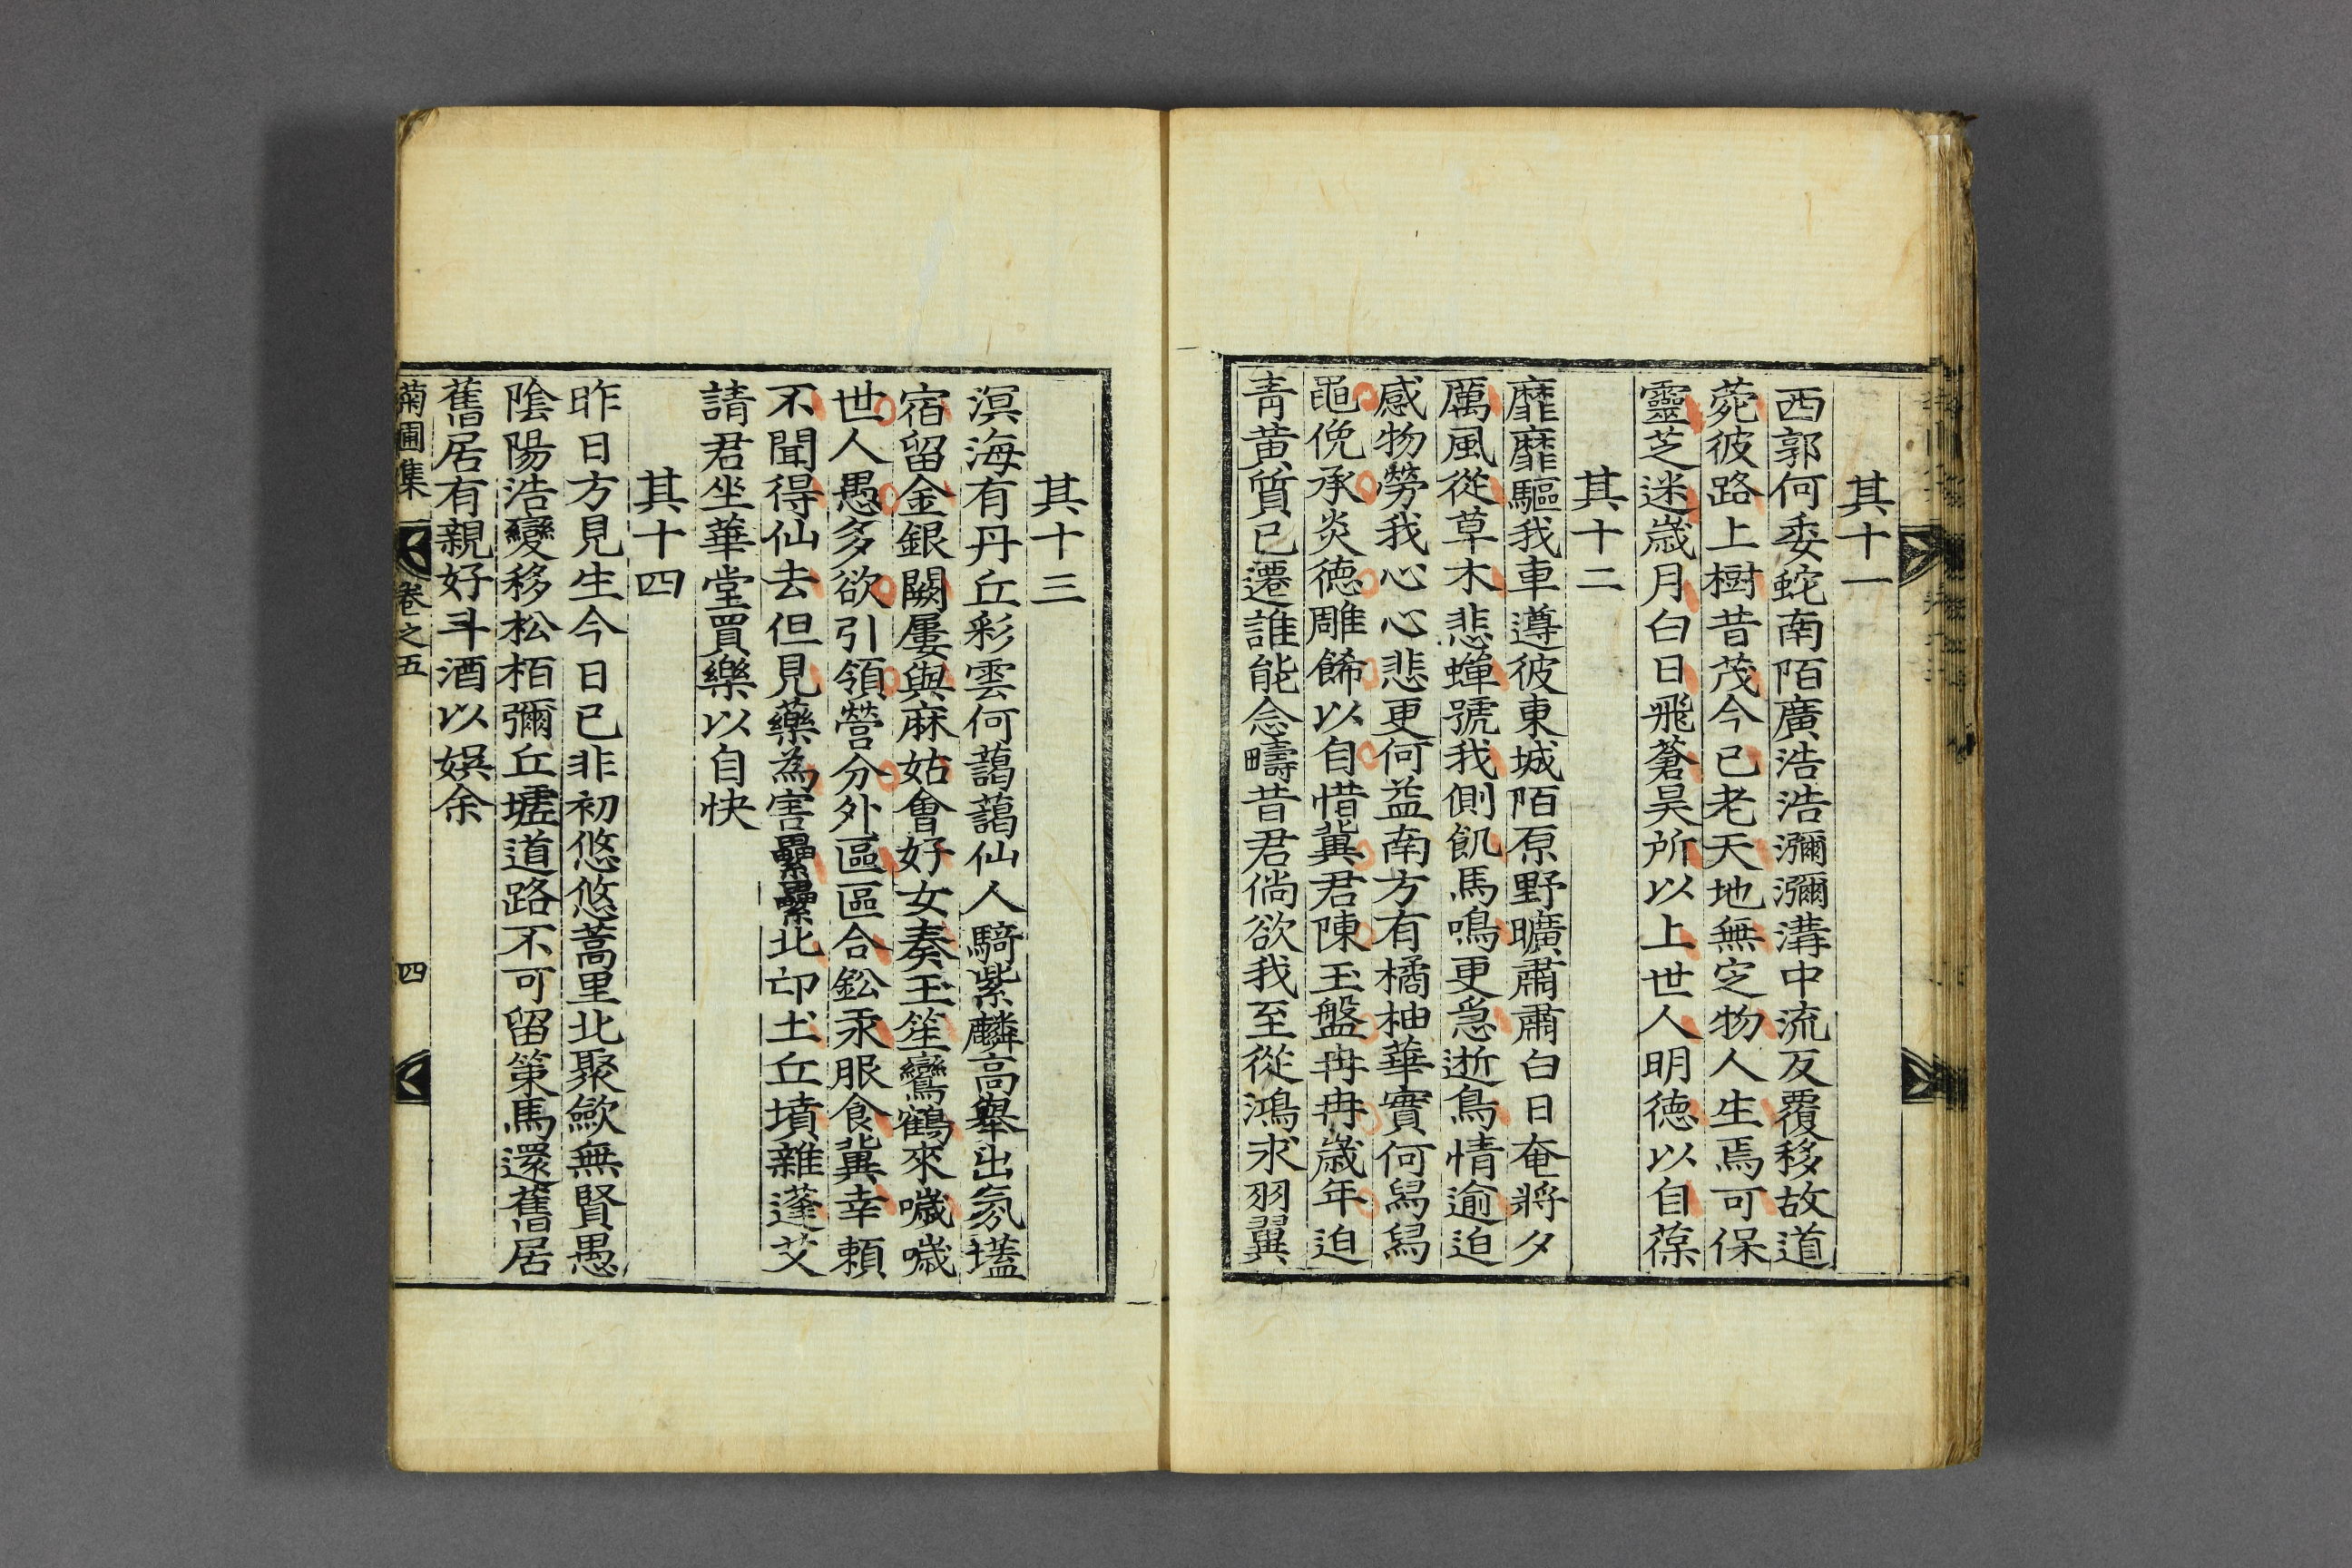 其十一
西郭何委蛇南陌廣浩浩瀰瀰溝中流反覆移故道
菀彼路上樹昔茂今已老天地無定物人生焉可保
靈芝迷歲月白日飛蒼昊所以上世人明德以自葆
其十二
靡靡驅我車遵彼東城陌原野曠肅肅白日奄將夕
厲風從草木悲蟬號我側飢馬鳴更急逝鳥情逾迫
感物勞我心心悲更何益南方有橘柚華實何舄舄
黽俛承炎德雕餙以自惜冀君陳玉盤冉冉歲年迫
靑黃質已遷誰能念疇昔君倘欲我至從鴻求羽翼
其十三
溟海有丹丘彩雲何藹藹仙人騎紫麟高擧出氛壒
宿留金銀闕屢與麻姑會好女奏玉笙鸞鶴來噦噦
世人愚多欲引領營分外區區合鈆汞服食冀幸賴
不聞得仙去但見藥為害纍纍北邙土丘墳雜蓬艾
請君坐華堂買樂以自快
其十四
昨日方見生今日已非初悠悠蒿里北聚歛無賢愚
陰陽浩變移松栢彌丘墟道路不可留策馬還舊居
舊居有親好斗酒以娛余
菊圃集 卷之五 四